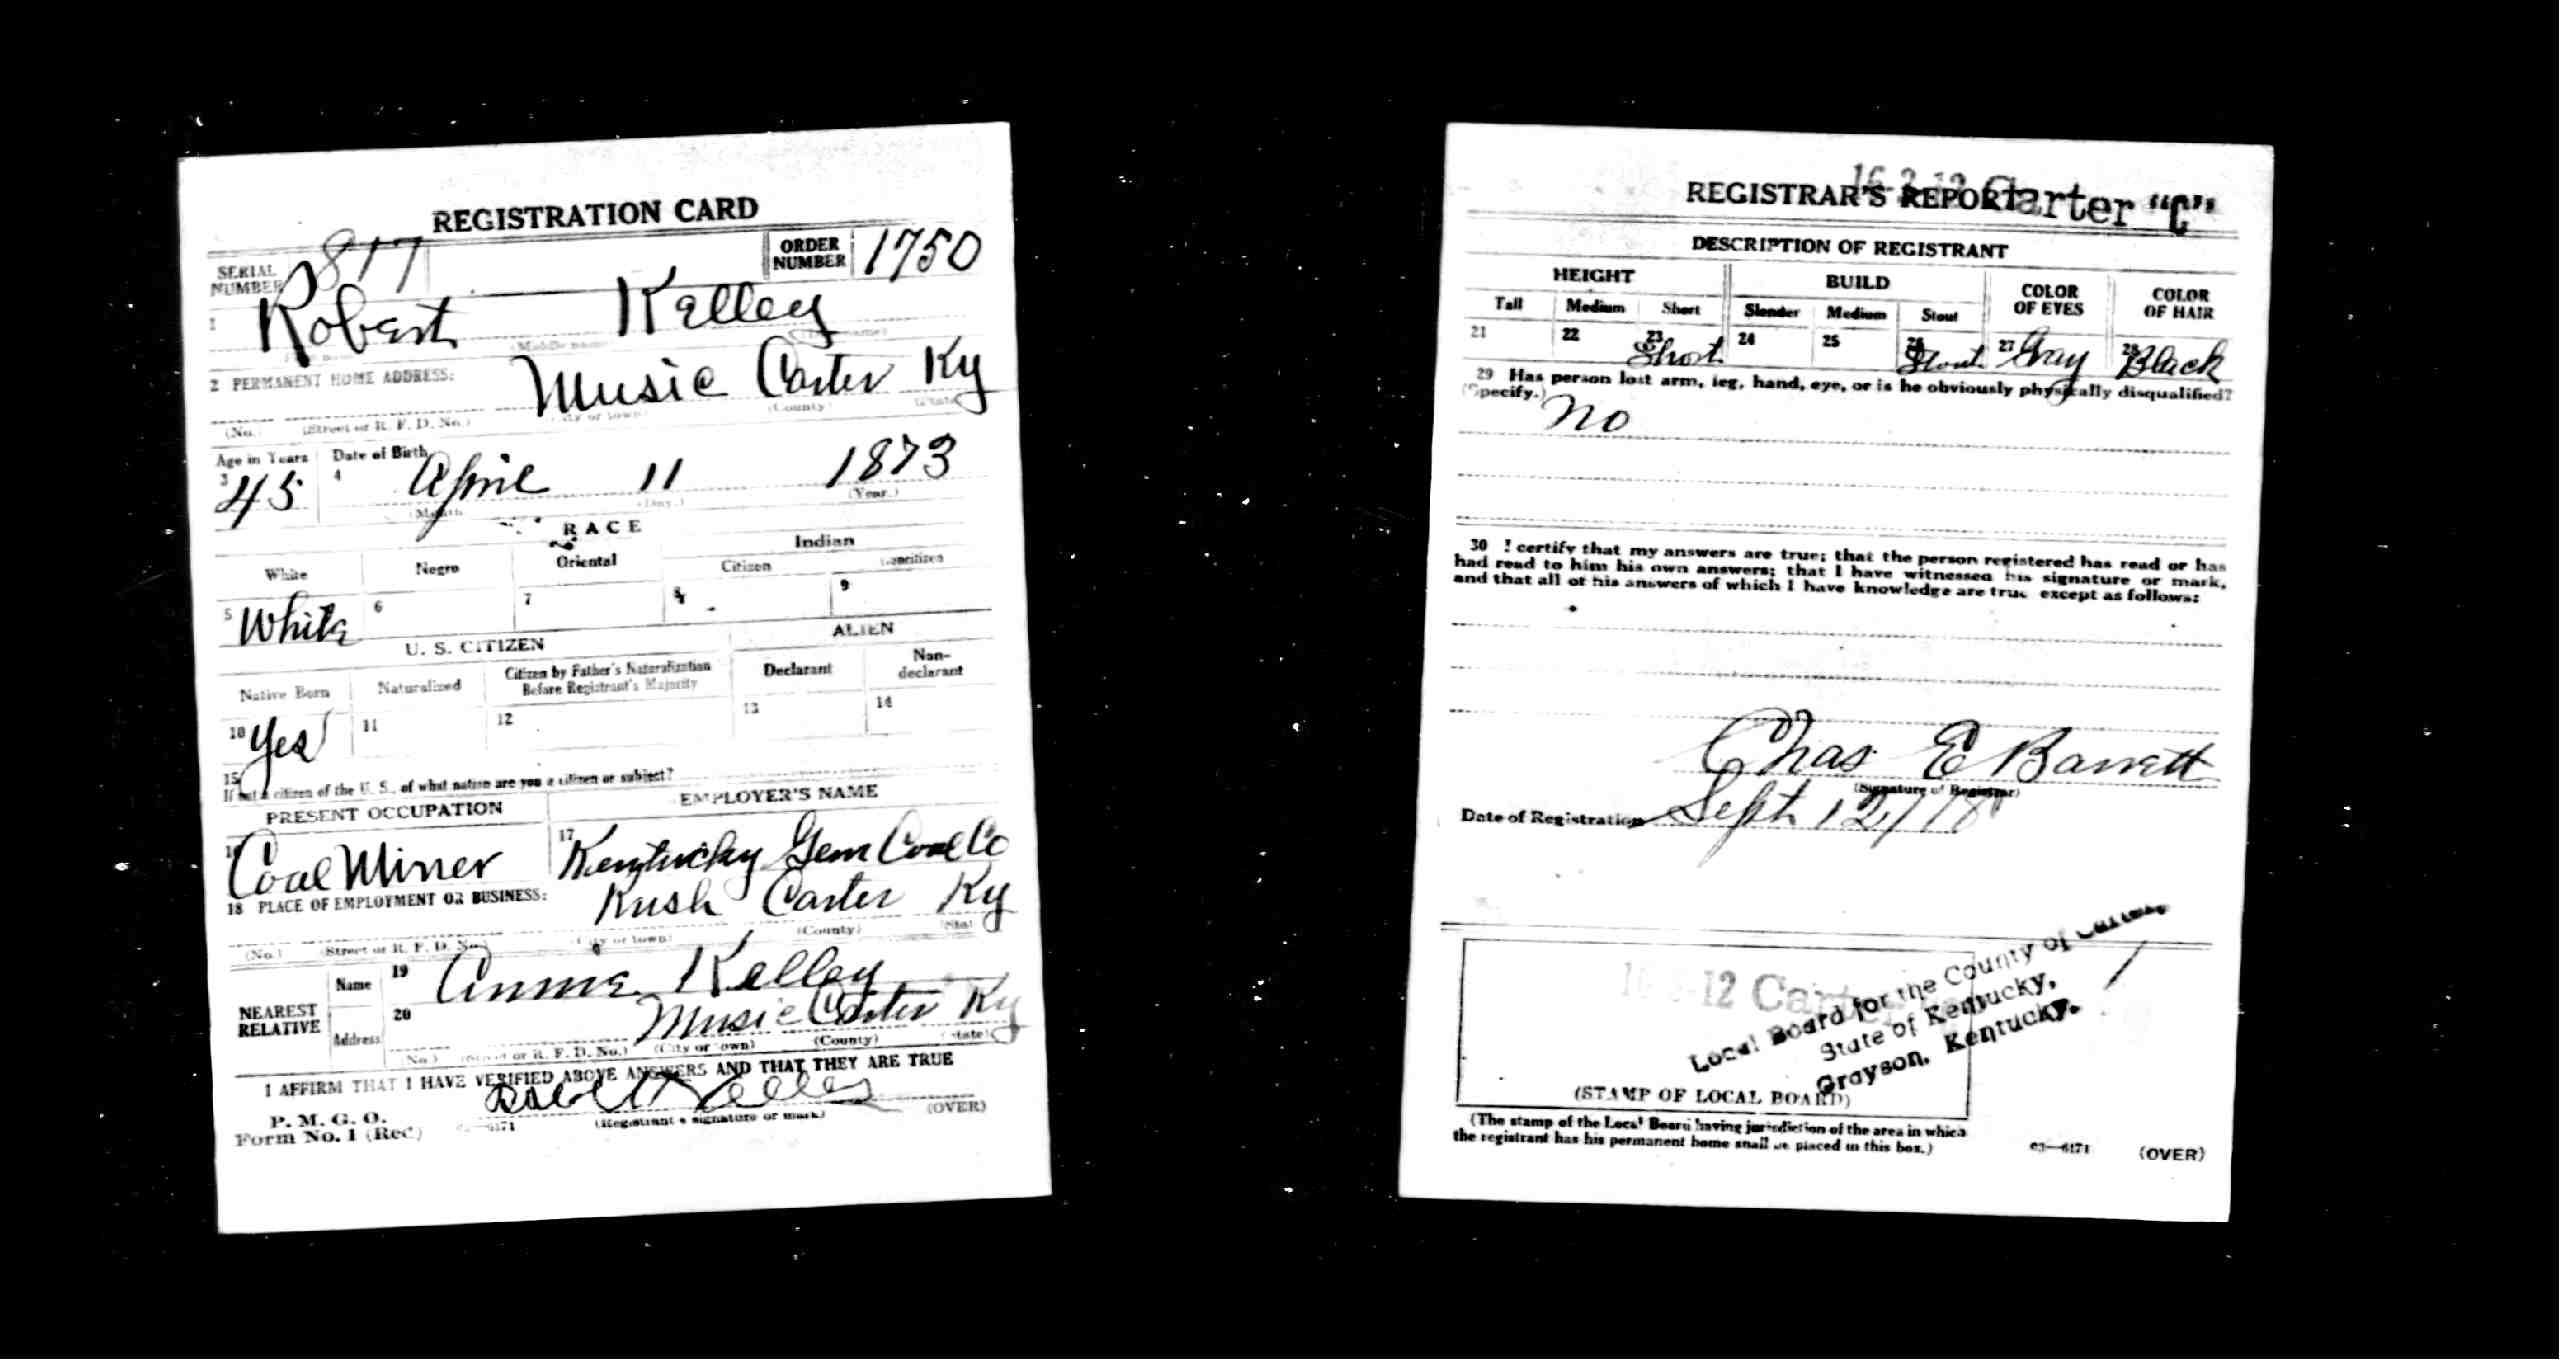 REGISTRATION CARD
SERIAL NUMBER 817 ORDER NUMBER 1750
1 Robert Kelley
(Middle name)
2 PERMANENT HOME ADDRESS: Music Carter Ky
(No.) (Street or R. F. D. No.) (City or town) (County) (State)
Age in Years Date of Birth
3 45 4 April 11 1873
(Month) (Day.) (Year.)
RACE
White Negro Oriental Indian
Citizen Noncitizen
5 White 6 7 8 9
U. S. CITIZEN ALIEN
Native Born Naturalized Citizen by Father's Naturalization Before Registrant's Majority Declarant Non-declarant
10 Yes 11 12 13 14
15
If not a citizen of the U. S., of what nation are you a citizen or subject?
PRESENT OCCUPATION EMPLOYER'S NAME
16 Coal Miner 17 Kentucky Gem Coal Co
18 PLACE OF EMPLOYMENT OR BUSINESS: Rush Carter Ky
(No.) (Street or R. F. D. No.) (City or town) (County) (State)
NEAREST RELATIVE Name 19 Kelley
Address 20 Music Carter Ky
(No.) (Street or R. F. D. No.) (City or town) (County) (State)
I AFFIRM THAT I HAVE VERIFIED ABOVE ANSWERS AND THAT THEY ARE TRUE
P. M. G. O.
Form No. 1 (Red) 03—6171 Robert Kelley
(Registrant's signature or mark) (OVER)
REGISTRAR'S REPORT
16-3-12 Carter "C"
DESCRIPTION OF REGISTRANT
HEIGHT BUILD COLOR OF EYES COLOR OF HAIR
Tall Medium Short Slender Medium Stout
21 22 23 Short 24 25 26 Stout 27 Gray 28 Black
29 Has person lost arm, leg, hand, eye, or is he obviously physically disqualified?
(Specify.) no
30 I certify that my answers are true; that the person registered has read or has
had read to him his own answers; that I have witnessed his signature or mark,
and that all of his answers of which I have knowledge are true except as follows:
Chas E Barrett
(Signature of Registrar)
Date of Registration Sept 12/18
16-3-12 Carter
Local Board for the County of Carter,
State of Kentucky,
Grayson, Kentucky.
(STAMP OF LOCAL BOARD)
(The stamp of the Local Board having jurisdiction of the area in which
the registrant has his permanent home shall be placed in this box.)
03—6171 (OVER)